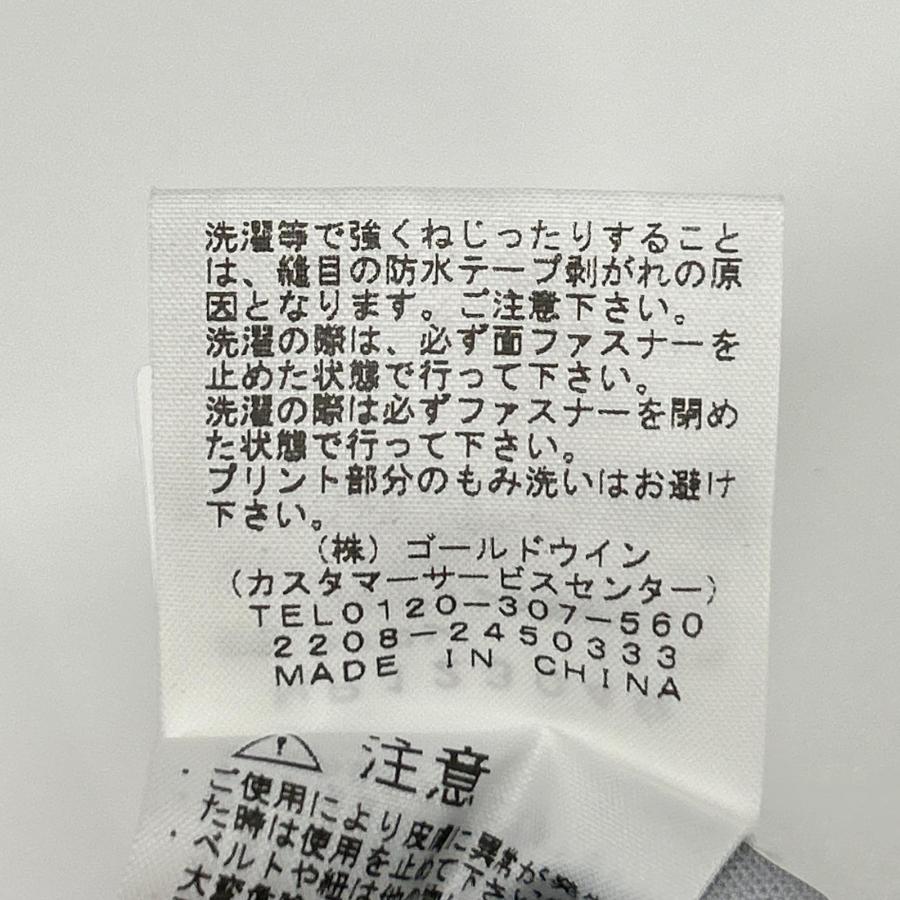 洗濯等で強くねじったりすること
は、縫目の防水テープ剥がれの原
因となります。ご注意下さい。
洗濯の際は、必ず面ファスナーを
止めた状態で行って下さい。
洗濯の際は必ずファスナーを閉め
た状態で行って下さい。
プリント部分のもみ洗いはお避け
下さい。
(株)ゴールドウイン
(カスタマーサービスセンター)
TEL0120-307-560
2208-2450333
MADE IN CHINA
注意
・ご使用により皮膚に異常が発
た時は使用を止めて下さ
・ベルトや紐は他の
大変危険